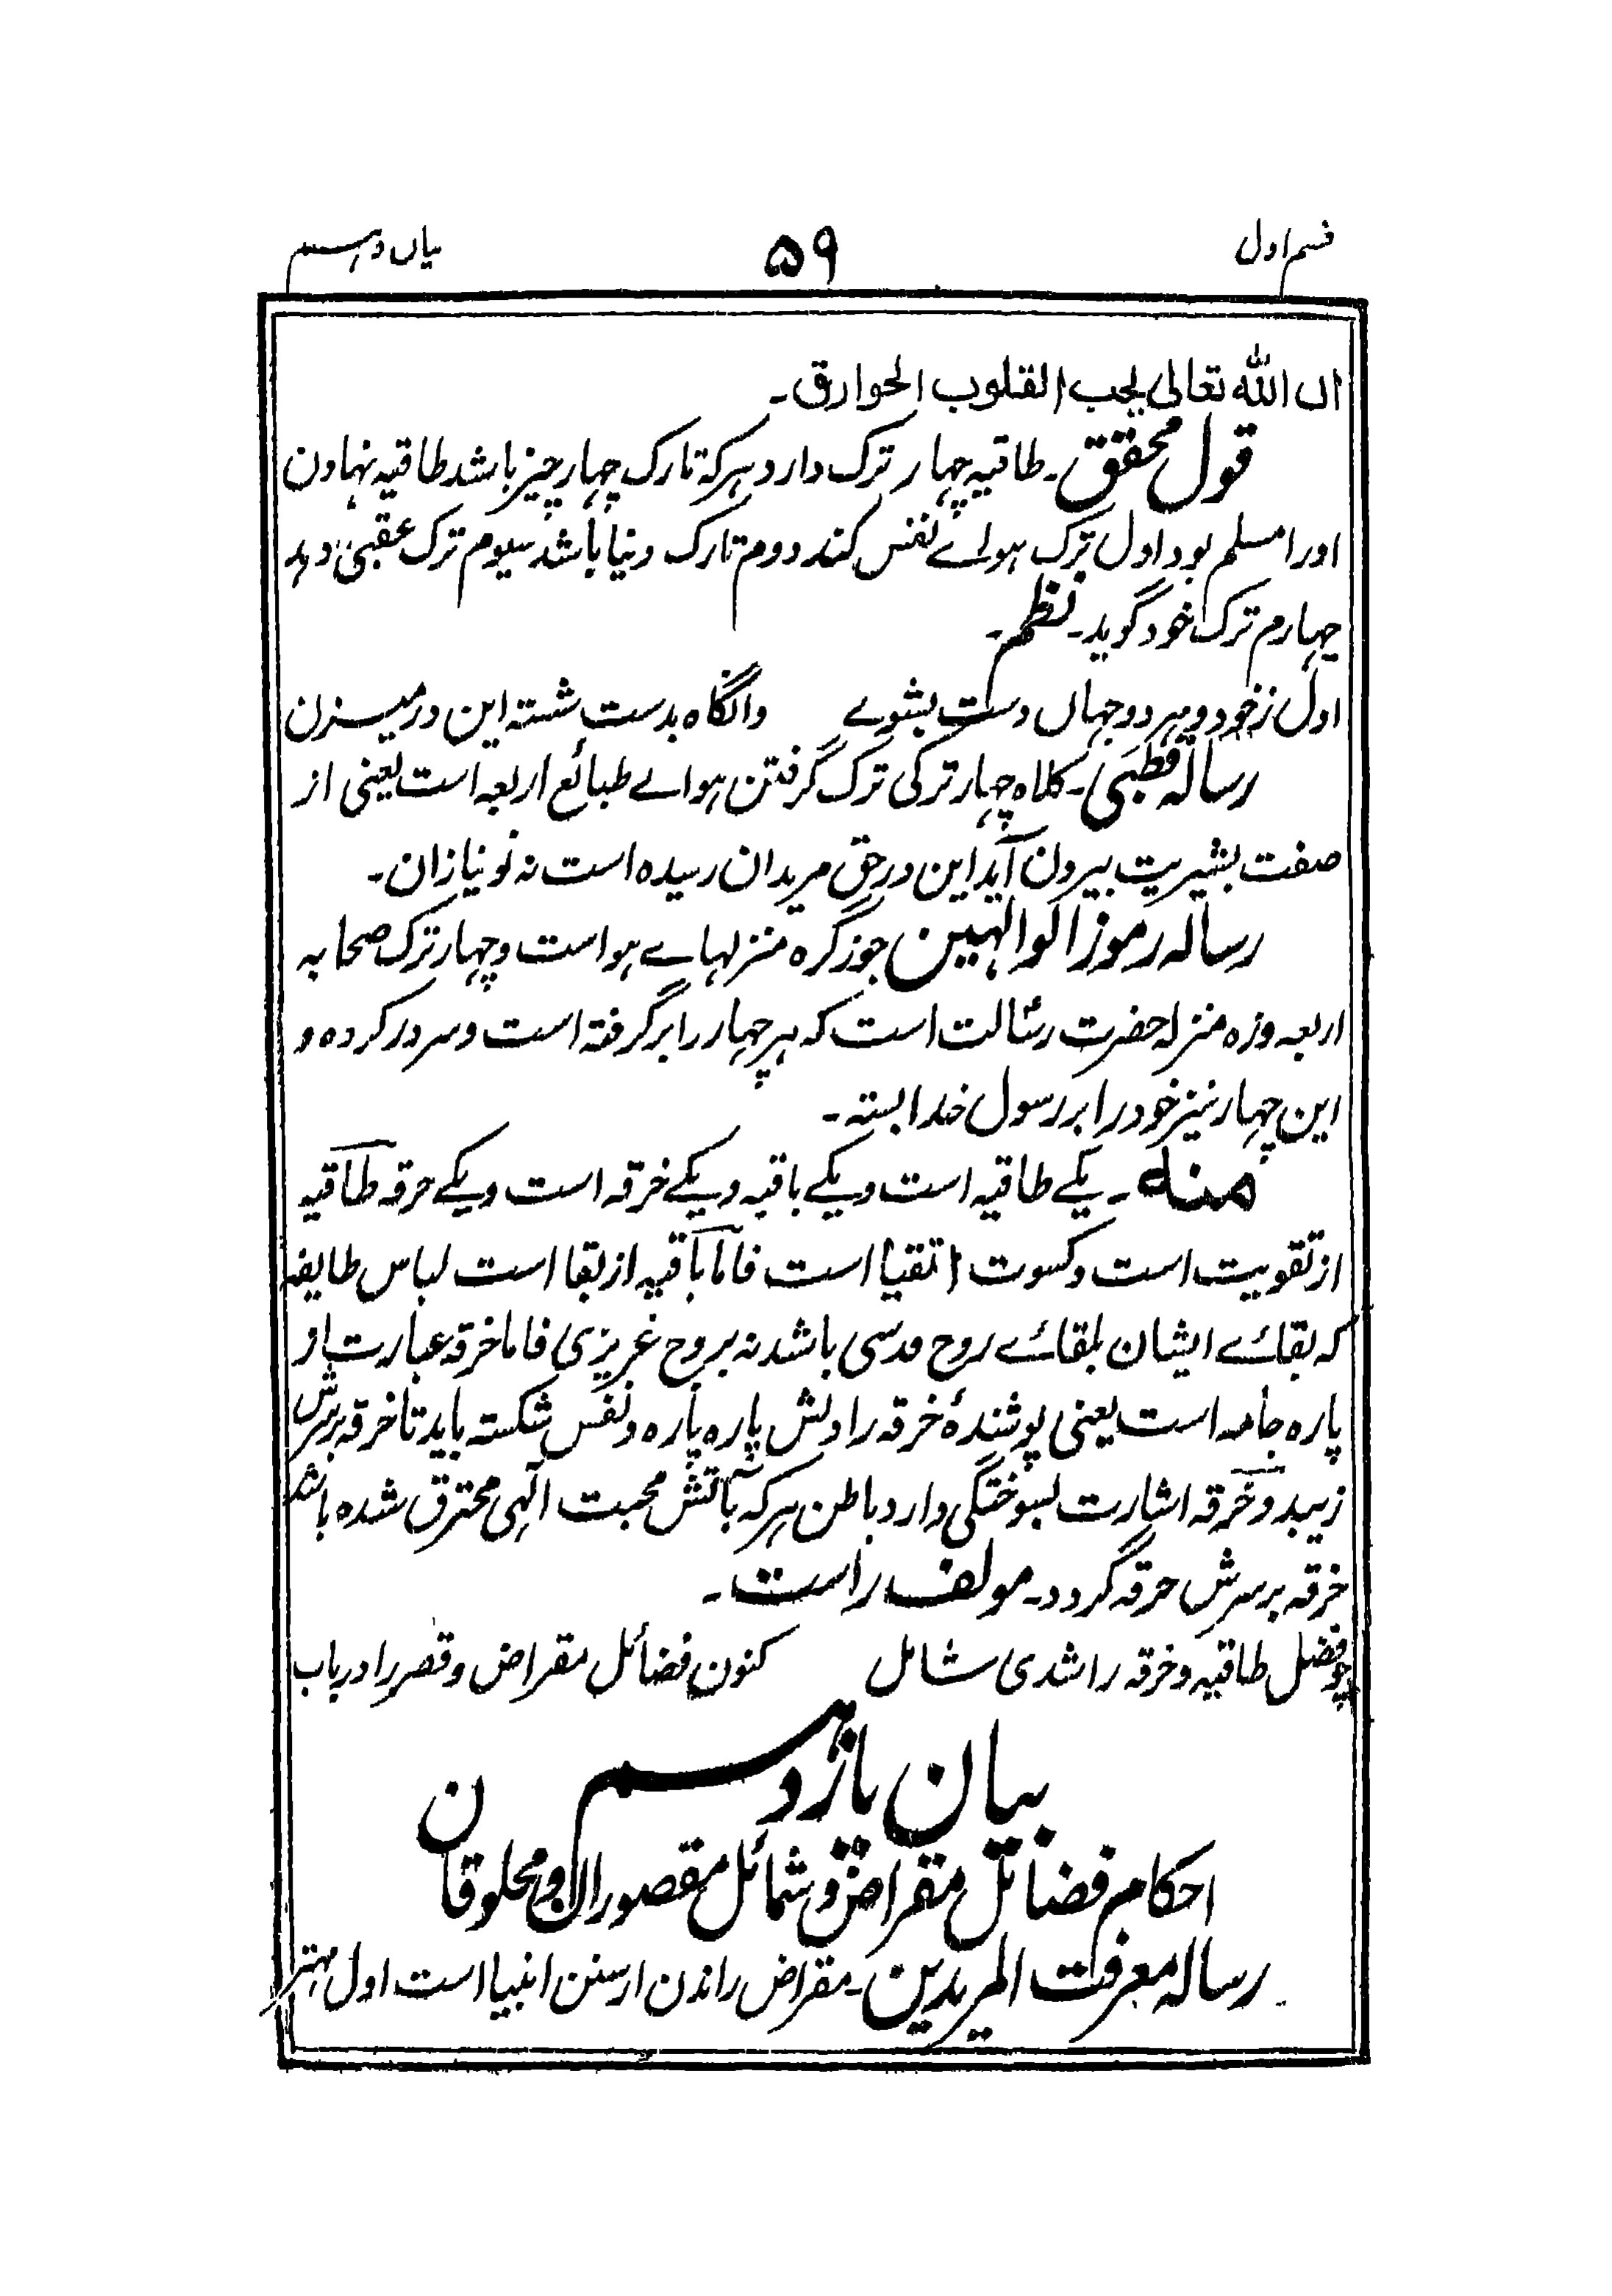 قسم اول ۵۹ بیاں دہم
ان اللہ تعالی یحب القلوب الحوارق۔
قول محقق۔ طاقیہ چہار ترک دارد ہرکہ تارک چہار چیز باشد طاقیہ نہادن
اورا مسلم بود اول ترک ہواے نفس کند دوم تارک دنیا باشد سیوم ترک عقبیٰ دہد
چہارم ترک خود گوید۔ نظم۔
اول زخود و ہر دو جہاں دست بشوے وانگاہ بدست شستہ این در میزن
رسالہ قطبی۔ کلاہ چہار ترکی ترک گرفتن ہواے طبائع اربعہ است یعنی از
صفت بشیریت بیرون آید این در حق مریدان رسیدہ است نہ نو نیازان۔
رسالہ رموز الوالہین جوزگرہ منزلہاے ہواست و چہار ترک صحابہ
اربعہ وزہ منزلہ حضرت رسالت است کہ ہر چہار را برگرفتہ است و سر در کردہ و
این چہار نیز خود را بر رسول خدا بستہ۔
منہ۔ یکے طاقیہ است و یکے باقیہ و یکے خرقہ است و یکے حرقہ طاقیہ
از تقویت است و کسوت اتقیا است فاما باقیہ از بقا است لباس طایفہ
کہ بقائے ایشان بلقائے روح قدسی باشد نہ بروح غریزی فاما خرقہ عبارت از
پارہ جامہ است یعنی پوشندۂ خرقہ را دلش پارہ پارہ و نفس شکستہ باید تا خرقہ برسرش
زیبد و حرقہ اشارت بسوختگی دارد باطن ہرکہ بآتش محبت الٰہی محترق شدہ باشد
خرقہ برسرش حرقہ گردد۔ مولف راست۔
چو فضل طاقیہ و خرقہ را شدی شامل کنون فضائل مقراض و قصر را دریاب
بیان یازدہم
احکام فضائل مقراض و شمائل مقصوران و محلوقان
رسالہ معرفت المریدین۔ مقراض راندن از سنن انبیا است اول مہتر